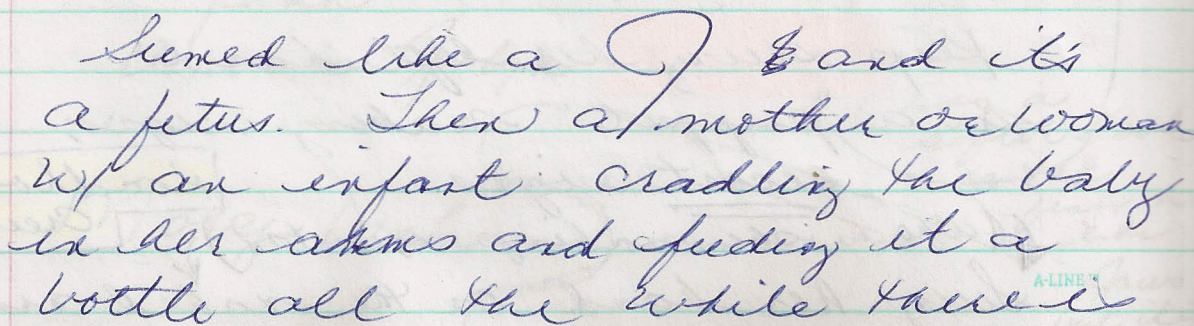 Seemed like a & and it's
a fetus. Then a mother or woman
w/ an infant cradling the baby
in her arms and feeding it a
A-LINE
bottle all the while there is